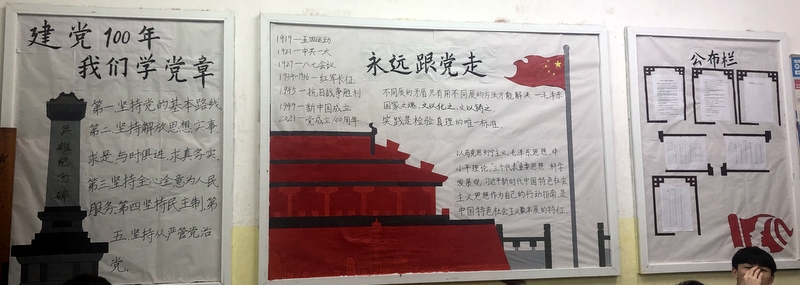 建党100年
我们学党章
第一坚持党的基本路线
第二坚持解放思想实事
求是,与时俱进,求真务实
第三坚持全心全意为人民
服务,第四坚持民主制,第
五,坚持从严管党治
党.
1919—五四运动
1921—中共一大
1927—八七会议
1934-1936—红军长征
1945—抗日战争胜利
1949—新中国成立
2021—党成立100周年
永远跟党走
不同质的矛盾只有用不同质的方法才能解决—毛泽东
实践是检验真理的唯一标准.
以马克思列宁主义,毛泽东思想,邓
小平理论,三个代表重要思想,科学
发展观,习近平新时代中国特色社会
主义思想作为自己的行动指南,是
中国特色社会主义最本质的特征.
公布栏